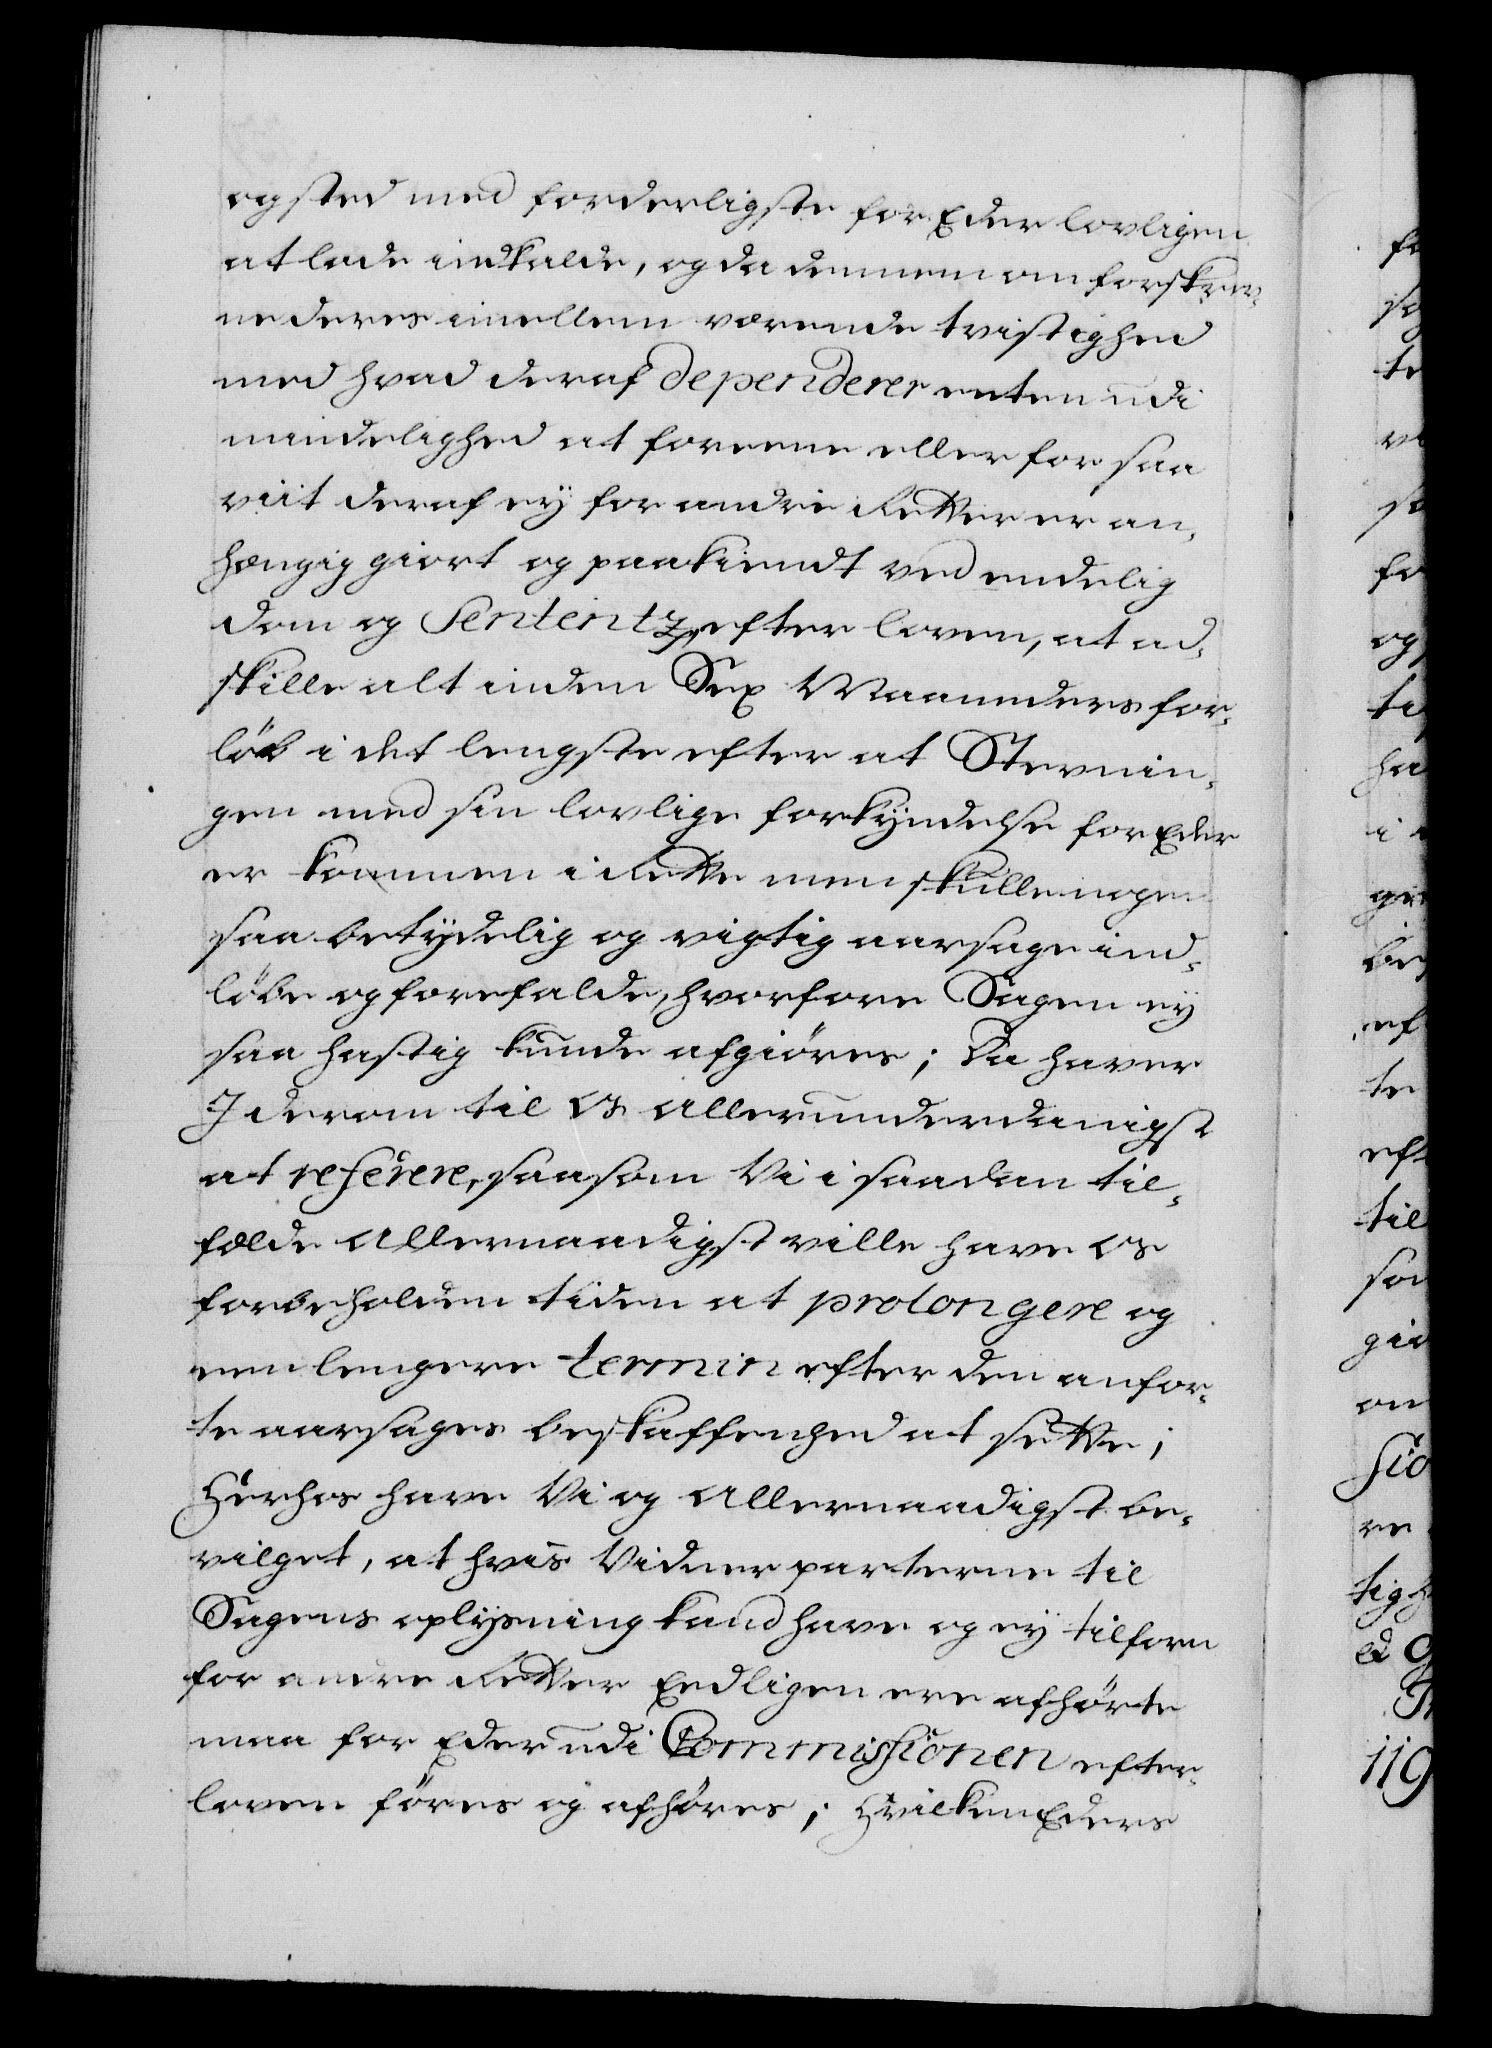 og sted med forderligste for Eder lovligen
at lade indkalde, og da dennem om forskrev¬
ne deres imellem værende tvistighed
med hvad deraf dependerer enten udi
mindelighed at foreene eller for saa
viit deraf eÿ for andre Retter er an¬
hængig giort og paakiendt ved endelig
dom og Sententz, efter loven, at ad¬
skille alt inden Sex Maaneders for¬
löb i det lengste efter at Stevnin¬
gen med sin lovlige forkÿndelse for Eder
er kommen i Rette men skulle nogen
saa betÿdelig og vigtig aarsage ind¬
löbe og forefalde, hvorfore Sagen eÿ
saa hastig kunde afgiöres; Da haver
I derom til os allerunderdanigst
at referere, saasom Vi i saadan til¬
fælde allernaadigst ville have os
forbeholden tiden at prolongere og
een lengere termin efter den anfør¬
te aarsages beskaffenhed at sette;
Hérhos have Vi og allernaadigst be¬
vilget, at hvis Vidner parterne til
Sagens oplysning kand have og eÿ tilforn
for andre Retter Eedligen ere afhörte
maa for Eder udi Commissionen efter
loven föres og afhöres; Hvilken Eders
119